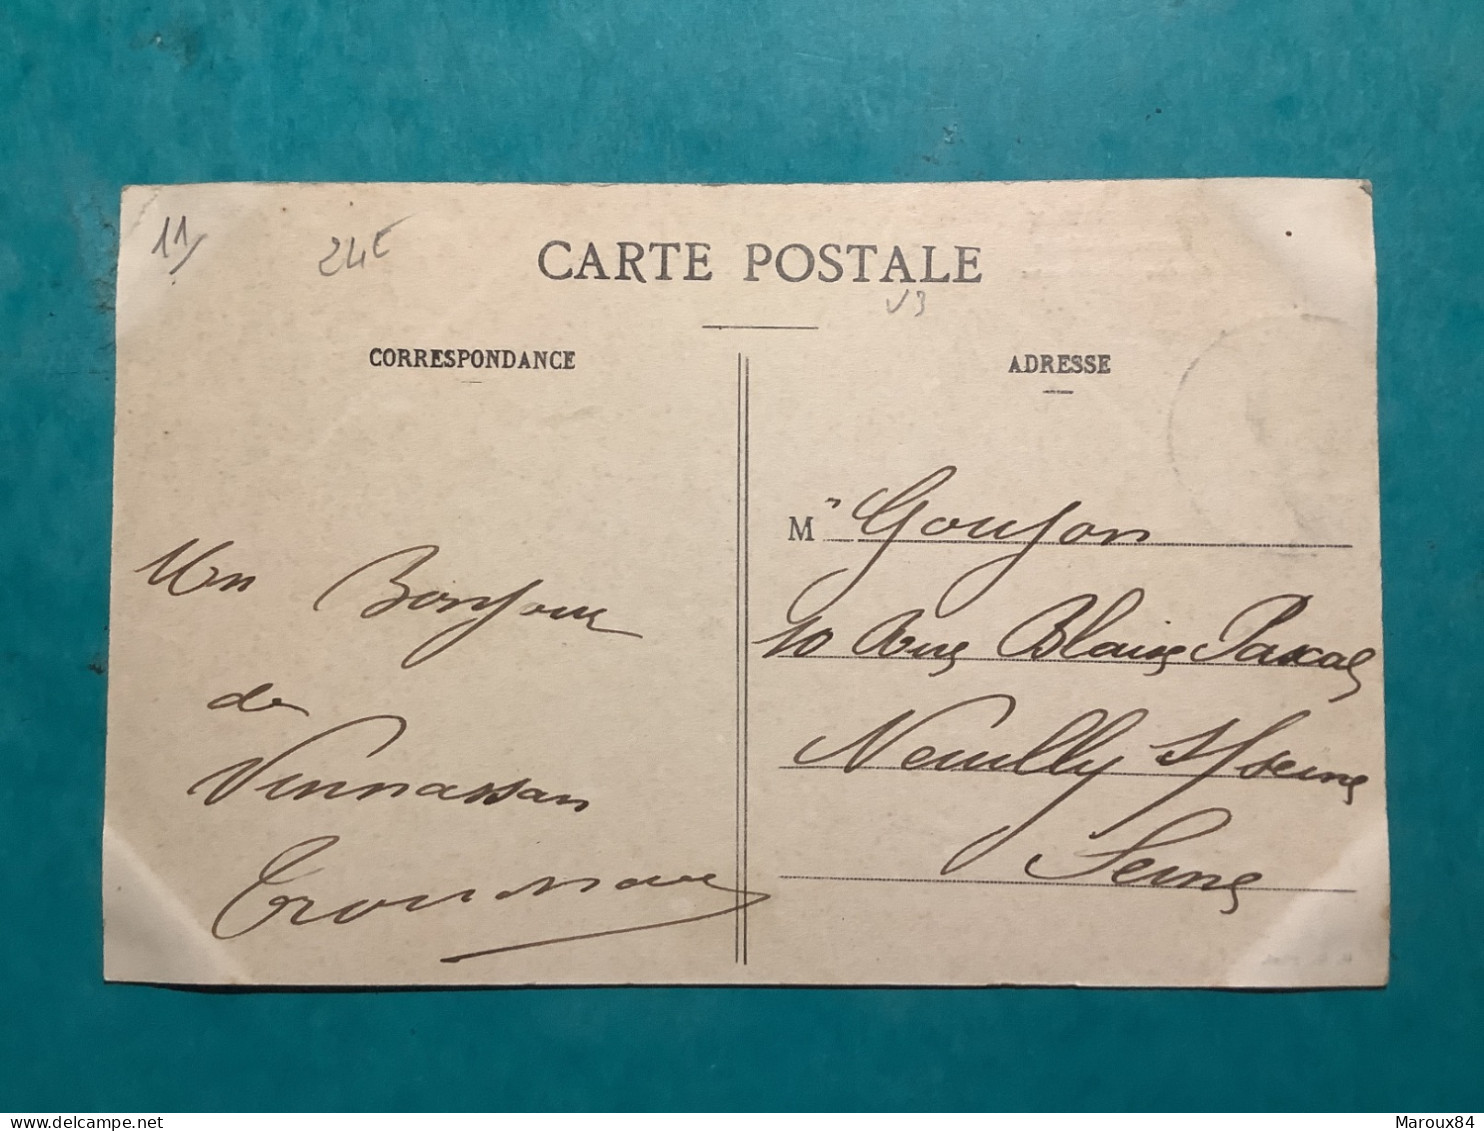 11
24€
CARTE POSTALE
v3
CORRESPONDANCE
ADRESSE
Un Bonjour
de
Vinnassan
M Goujon
10 Rue Blaise Pascal
Neuilly s/ Seine
Seine
Maroux84